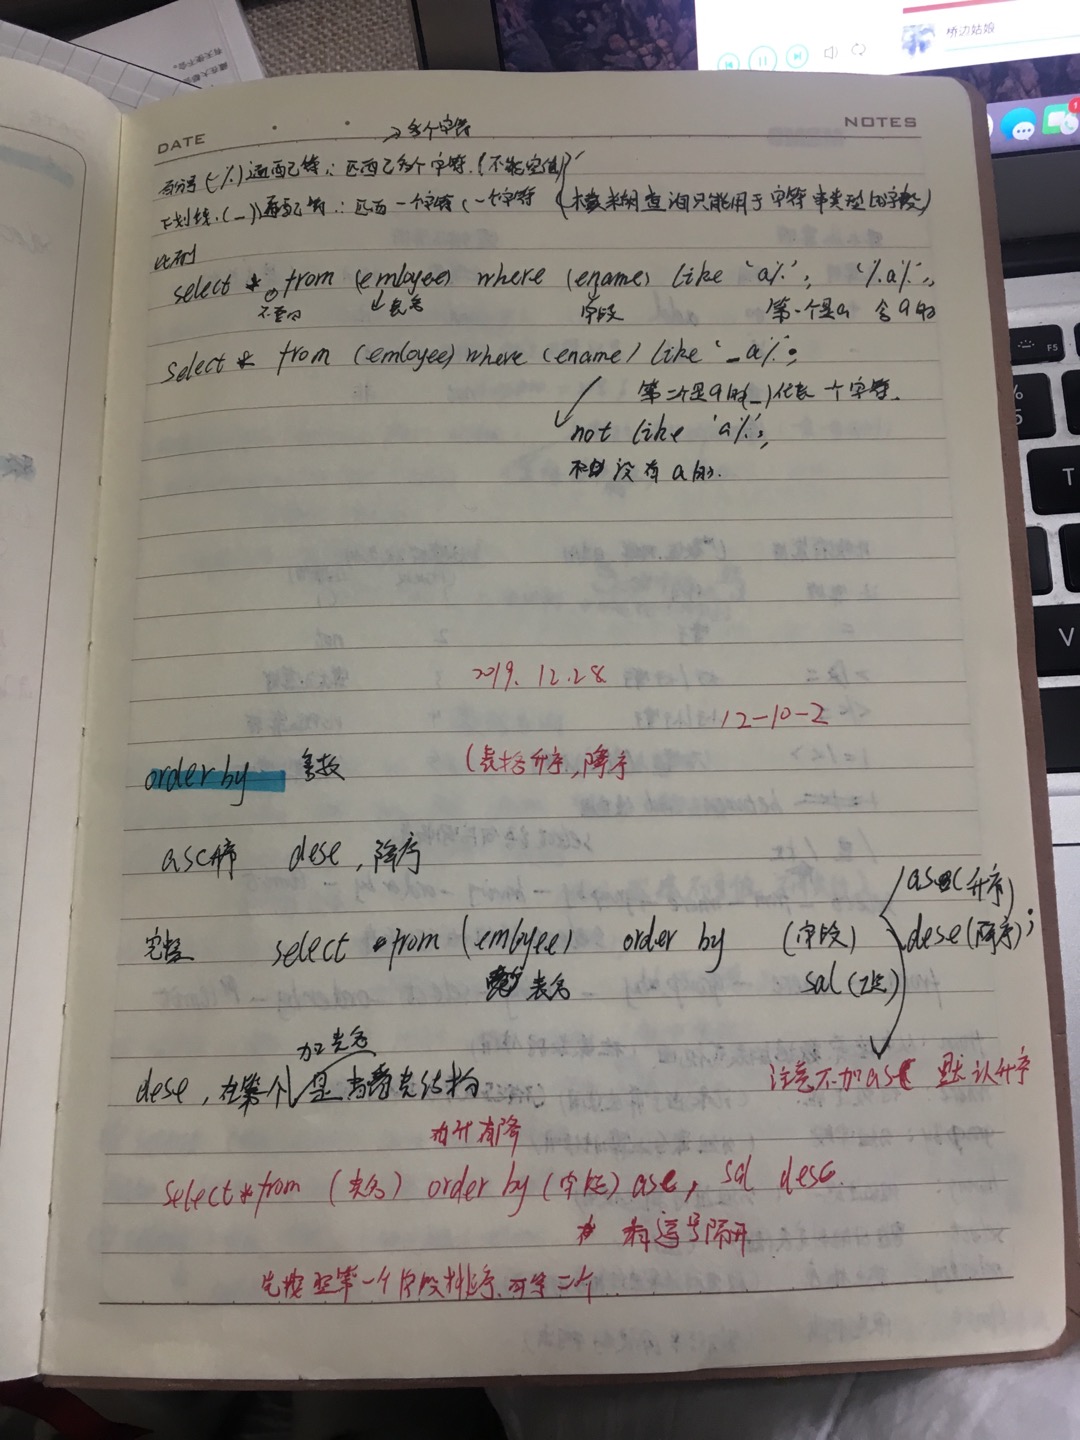 桥边姑娘
DATE
NOTES
→多个字符
百分号(%)通配符:匹配多个字符.(不能空值)
下划线.(_)通配符:匹配一个字符(一个字符 (模糊查询只能用于字符串类型的字段)
比例
select * from (emloyee) where (ename) like 'a%'; '%a%';
↓表名 字段 第一个是a 含a的
select * from (emloyee) where (ename) like '_a%';
第二个是a的(_)代表一个字符.
not like 'a%';
没有a的.
2019.12.28
12-10-2
order by (表括升序,降序
asc升序 dese,降序
完整 select * from (embyee) order by (字段) asc(升序)
dese(降序);
表名 sal(
加表名
dese,在第个 是 查看表结构
注意不加asc 默认升序
有升有降
select * from (表名) order by (字段) ase, sal desc.
有逗号隔开
先按照第一个字段排序.可等二个
F5
%
5
T
V
1